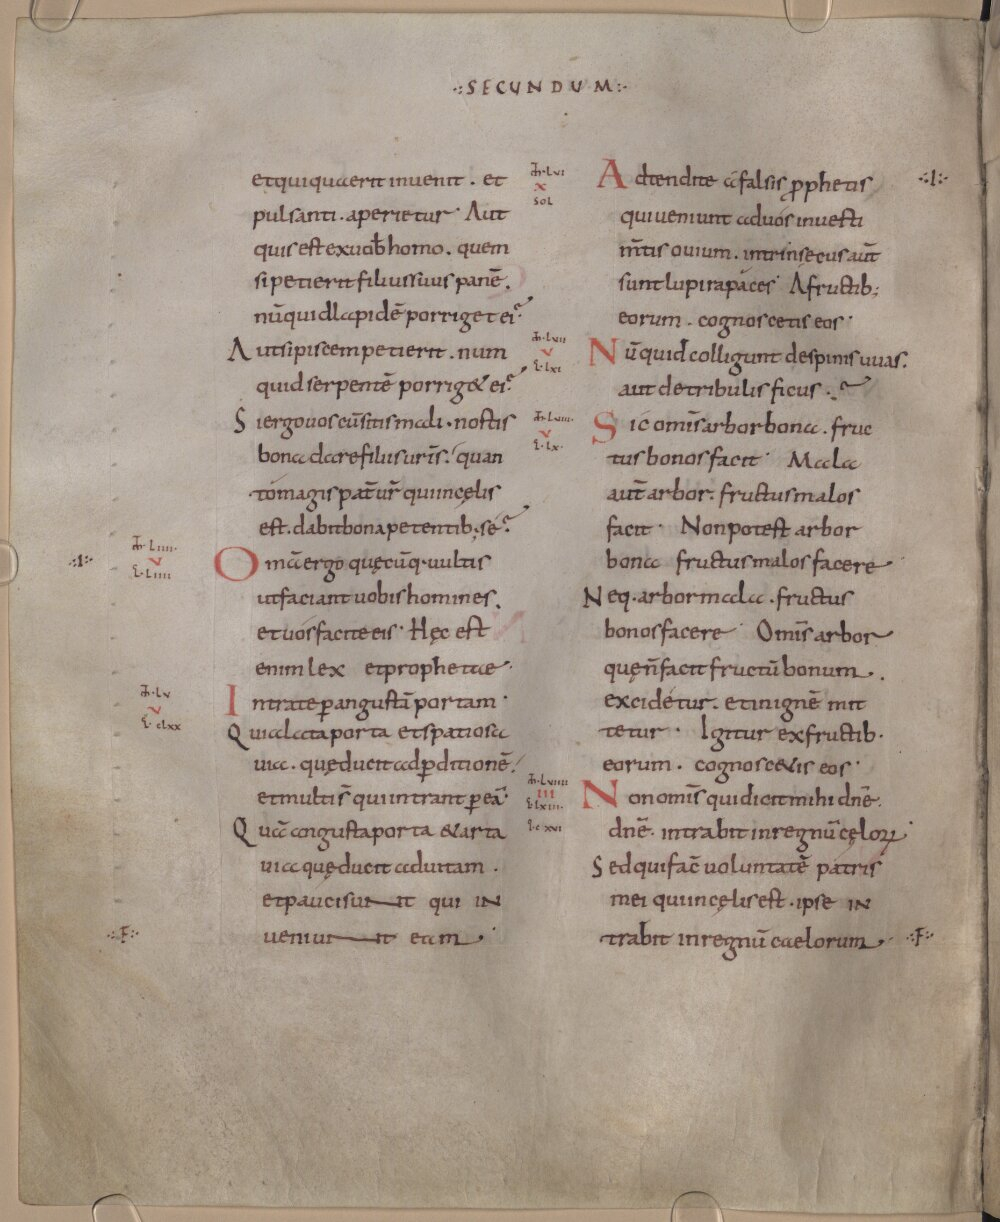 ·:SECUNDUM:·
et qui quaerit invenit . et
pulsanti . aperietur· Aut
quis est ex vob̄ homo . quem
si petierit filius suus panē .
nūquid lapidē porriget ei
Aut si piscem petierit . num
quid serpentē porrig& ei
Si ergo vos cū sitis mali . nostis
bona dare filiis uris̄ . quan
to magis pat̄ ur̄ qui in cęlis
est . dabit bona petentib; sē
·I· Omā ergo quęcūq· vultis
ut faciant vobis homines .
et vos facite eis· Hęc est
enim lex et prophetae·
Intrate p angustā portam·
Quia lata porta et spatiosa
via . quę ducit ad pditionē .
et multi s̄ qui intrant p eā·
Quā angusta porta & arta
via quę ducit ad vitam .
et pauci sunt qui in
·:F:· veniunt eam·
m̄·LIIII·
V
L·LIIII
m̄·LV
V
L·CLXX
m̄·LVI
X
SOL
Adtendite a falsis pphetis ·:I:·
qui veniunt ad vos in vesti
m̄tis ovium . intrinsecus aut̄
sunt lupi rapaces· A fructib;
eorum . cognoscetis eos·
m̄·LVII
V
L·LXI
Nūquid colligunt de spinis uvas .
aut de tribulis ficus .
m̄·LVIII·
V
L·LX·
Sic omīs arbor bona . fruc
tus bonos facit· Mala
aut̄ arbor . fructus malos
facit· Non potest arbor
bona fructus malos facere
Neq· arbor mala . fructus
bonos facere· Omīs arbor
quę n̄ facit fructū bonum .
excidetur . et in ignē mit
tetur· Igitur ex fructib·
eorum . cognosc&is eos·
m̄·LVIIII
III
L·LXIII·
I·CXVI
Non omīs qui dicit mihi dn̄e .
dn̄e . intrabit in regnū cęloꝝ·
Sed qui fac̄ voluntatē patris
mei qui in cęlis est . ipse in
trabit in regnū caelorum· ·:F:·